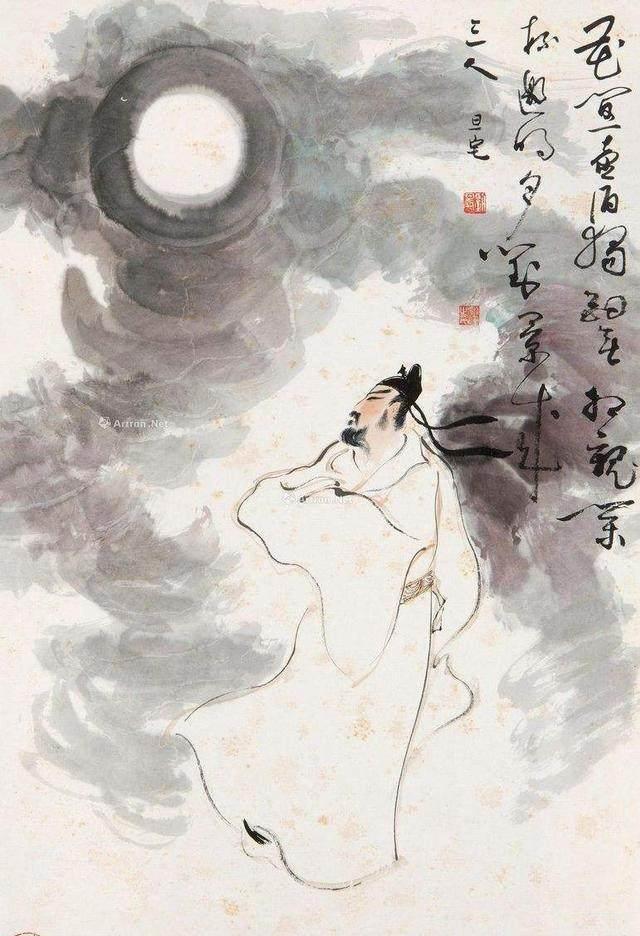 花間一壺酒獨酌無相親舉
杯邀明月對影成
三人
旦宅
Artron.Net
Artron.Net